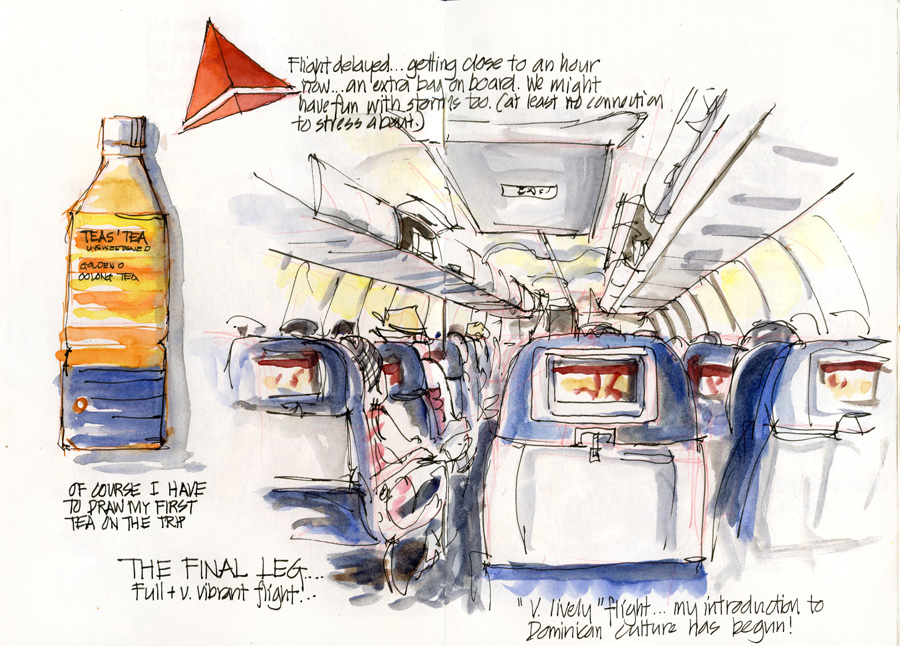 Flight delayed... getting close to an hour
now... an extra bag on board. We might
have fun with storms too. (at least no connection
to stress about.)
EXIT
TEAS' TEA
UNSWEETENED
GOLDEN
OOLONG TEA
OF COURSE I HAVE
TO DRAW MY FIRST
TEA ON THE TRIP
THE FINAL LEG...
Full + v. vibrant flight!..
"V. lively" flight... my introduction to
Dominican culture has begun!